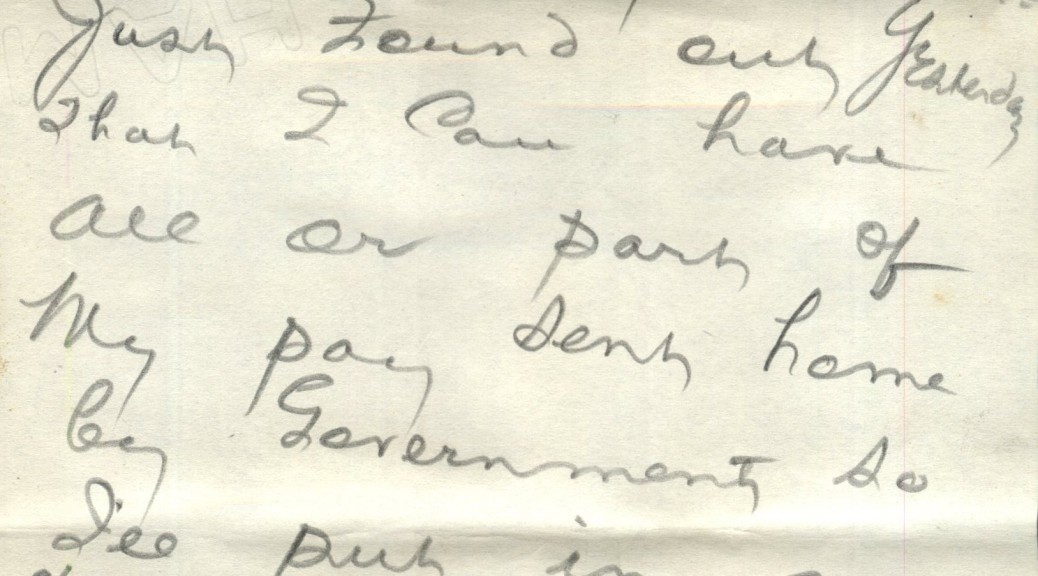 Just Found out Yesterday
That I Can have
all or part of
My pay sent home
by Government so
I'll put in